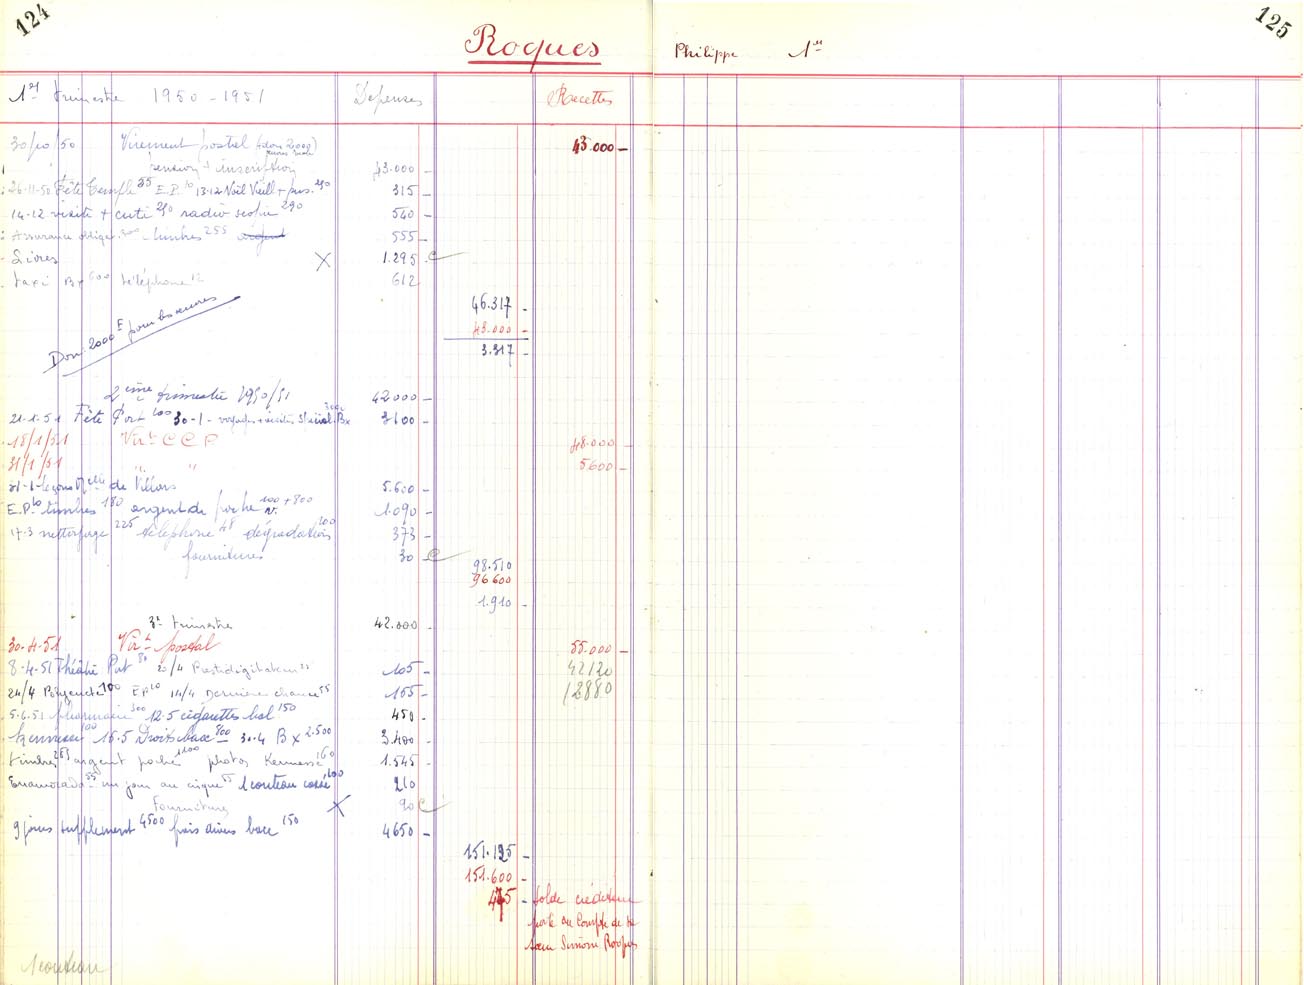 124
125
Roques
Philippe 1er
1er trimestre 1950-1951 Depenses Recettes
30/10/50 Virement postal (don 2000) 43.000 -
pension + inscription 43.000 -
26-11-50 Fête Temple 35 E.P. 10 13-12 Noël Vieill + 315 -
14-12 visite + cuti 250 radio scopie 290 540 -
Assurance obligat. 300 - timbres 255 argent 555 -
Livres X 1.295 c
taxi Bx 600 téléphone 12 612
46.317 -
43.000 -
3.317 -
Don: 2000 F pour les œuvres
2ème trimestre 1950/51 42000 -
21-1-51 Fête Port 100 30-1- voyages + visites St Bx 3000 3100 -
18/1/51 Virt C C P 48.000 -
31/1/51 " " 5.600 -
31-1-leçons Melle de Villars 5.600 -
E.P. 10 timbres 180 argent de poche 100 + 800 1.090 -
17-3 nettoyage 225 téléphone 48 dégradations 100 373 -
fournitures 30 c
98.510
96600
1.910 -
3e trimestre 42.000 -
30-4-51 Virt postal 55.000 -
8-4-51 Théâtre Port 80 20/4 Prestidigitateur 25 105 - 42120
24/4 Polyeucte 100 E.P. 10 14/4 Dernière chance 55 165 - 12880
5.6.51 pharmacie 300 12.5 cigarettes bal 150 450 -
Kermesse 100 16.5 Droits bacc 800 30.4 Bx 2.500 3.400 -
timbres 285 argent poche 1100 photos Kermesse 160 1.545 -
Enamorada 55 un jour au cirque 55 1 couteau cassé 100 210 -
Fournitures X 90 c
9 jours supplément 4500 frais divers bacc 150 4650 -
151.125 -
151.600 -
475 - Solde créditeur
porté au Compte de sa
sœur Simone Roques
1 couteau